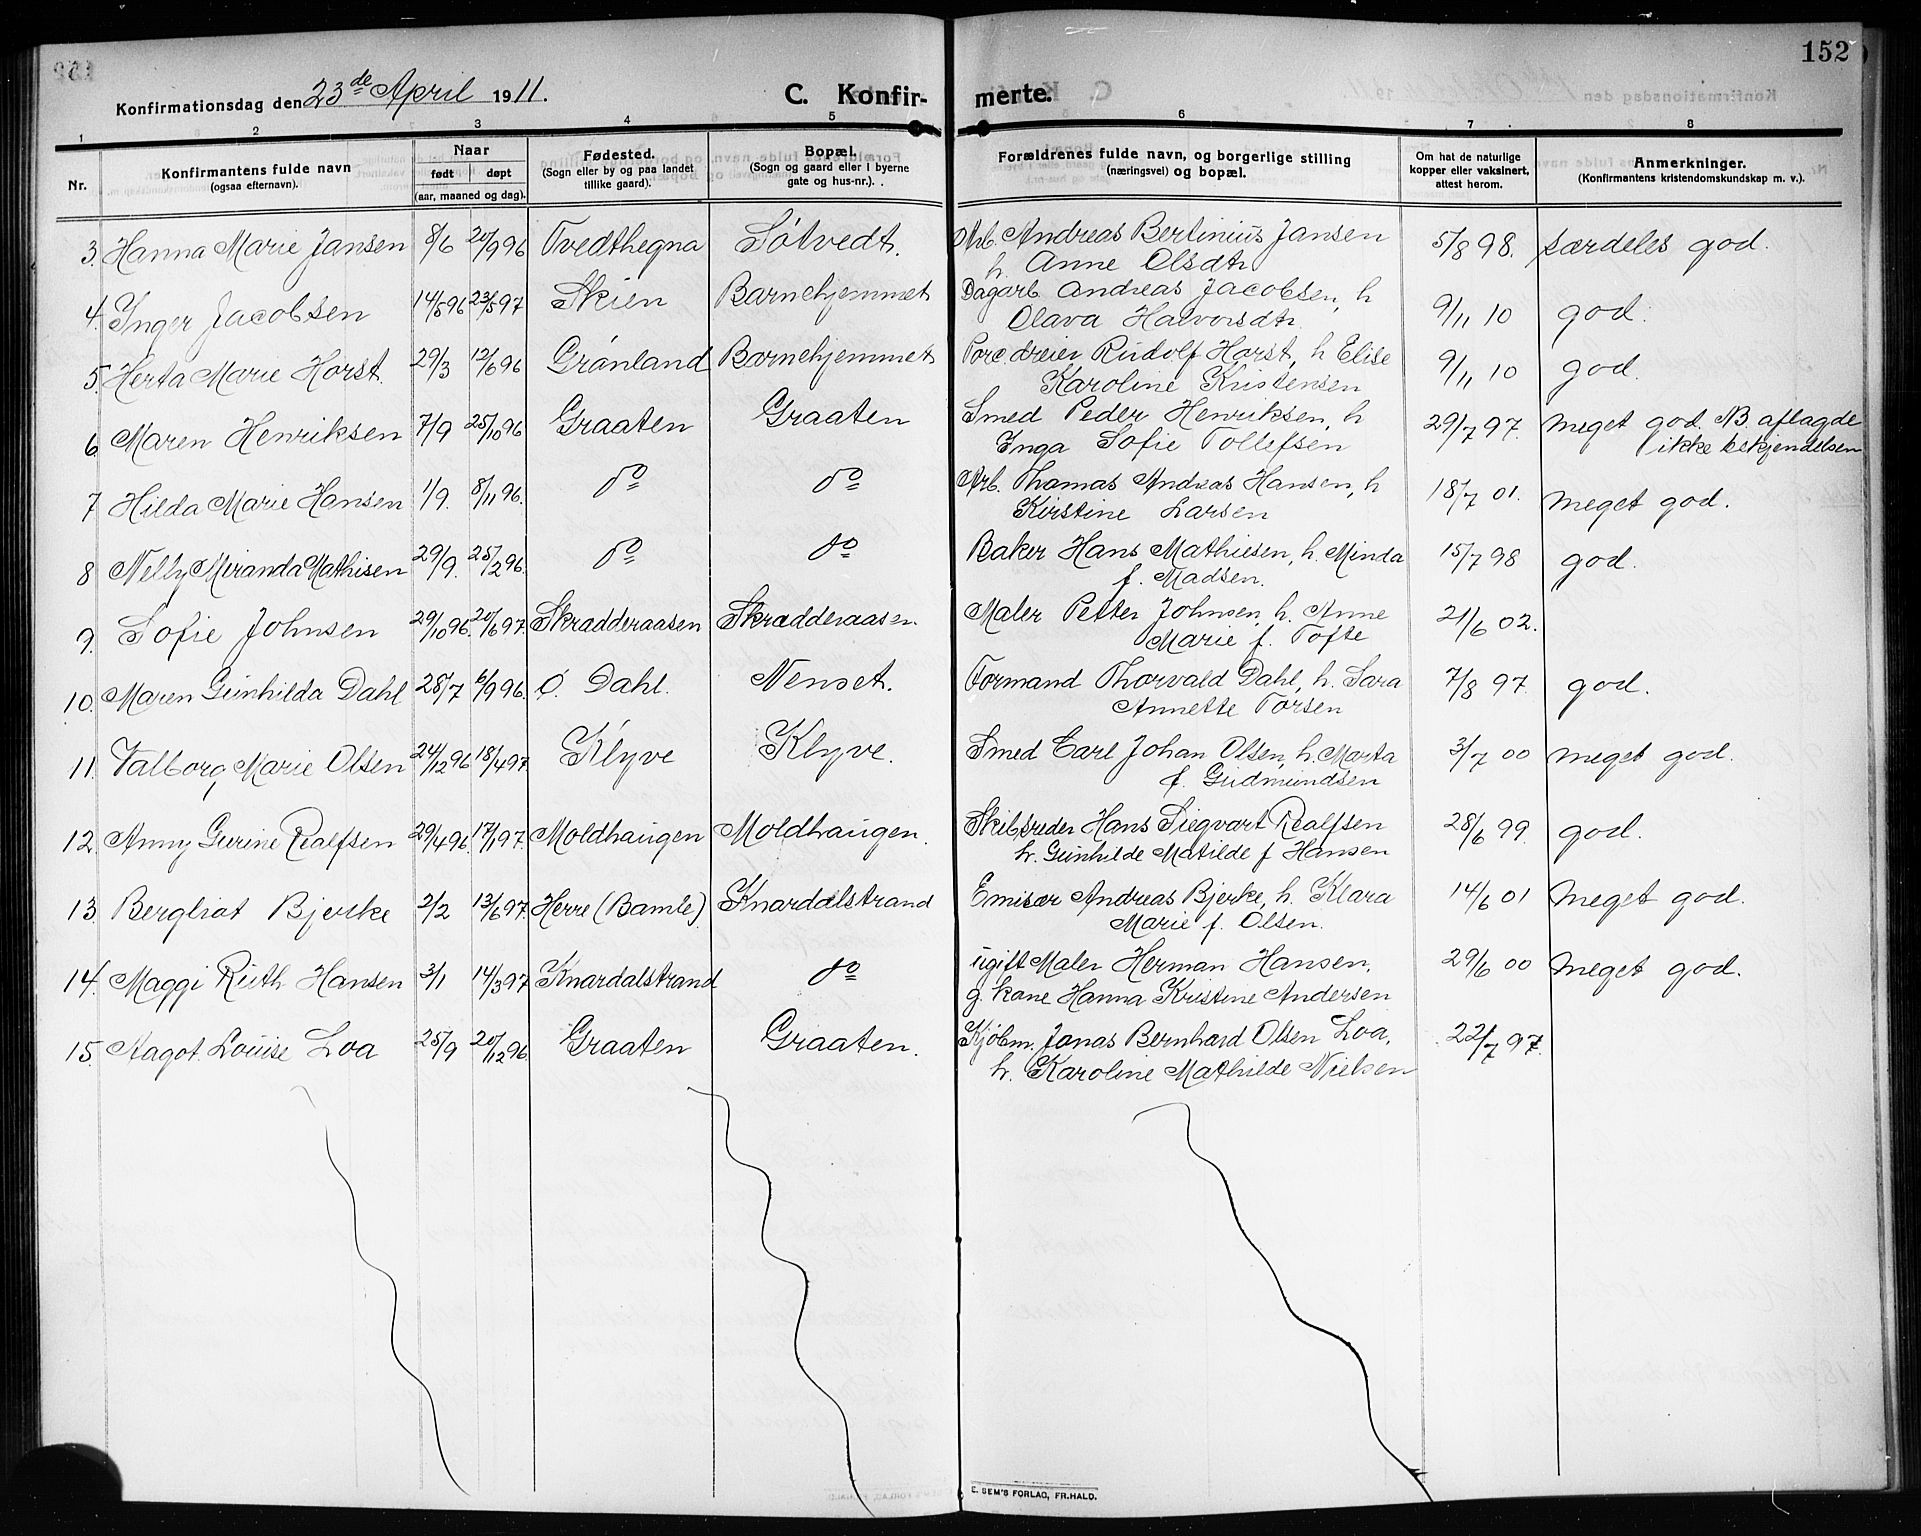 152
Konfirmationsdag den 23de April 1911.
C. Konfir- merte.
1 2 3 4 5 6 7 8
Nr.
Konfirmantens fulde navn
(ogsaa efternavn).
Naar
født døpt
(aar, maaned og dag).
Fødested.
(Sogn eller by og paa landet
tillike gaard).
Bopæl.
(Sogn og gaard eller i byerne
gate og hus-nr.).
Forældrenes fulde navn, og borgerlige stilling
(næringsvei) og bopæl.
Om hat de naturlige
kopper eller vaksinert,
attest herom.
Anmerkninger.
(Konfirmantens kristendomskundskap m. v.).
3. Hanna Marie Jansen 8/6 20/9 96 Tvedthegna Søtvedt. Arb. Andreas Bertinius Jansen 5/8 98. særdeles god.
h. Anne Olsdtr
4. Inger Jacobsen 14/5 96 23/5 97 Skien Barnehjemmet Dagarb. Andreas Jacobsen, h 9/11 10 god.
Olava Halvorsdtr.
5. Herta Marie Horst. 29/3 12/6 96 Grønland Barnehjemmet Porc. dreier Rudolf Horst, h Elise 9/11 10 god.
Karoline Kristensen
6. Maren Henriksen 7/9 25/10 96 Graaten Graaten Smed Peder Henriksen, h 29/7 97. meget god. NB aflagde
Inga Sofie Tollefsen ikke bekjendelsen
7 Hilda Marie Hansen 1/9. 8/11 96. do do Arb. Thomas Andreas Hansen, h 18/7 01. meget god.
Kirstine Larsen
8 Nelly Miranda Mathisen 29/9. 25/12 96. do do Baker Hans Mathiesen, h. Minda 15/7 98 god.
f. Madsen.
9. Sofie Johnsen 29/10 96. 20/6 97. Skradderaasen Skradderaasen. Maler Petter Johnsen, h. Anne 21/6 02.
Marie f. Tofte
10. Maren Gunhilda Dahl 28/7 6/9 96. Ø. Dahl. Nenset. Formand Thorvald Dahl, h. Sara 7/8 97. god.
Annette Torsen
11. Valborg Marie Olsen 24/12 96 18/4 97. Klyve Klyve. Smed Carl Johan Olsen, h. Marta 3/7 00 meget god.
f. Gudmundsen
12. Anny Gurine Realfsen 29/4 96. 17/1 97. Moldhaugen Moldhaugen. Skibsreder Hans Siegvart Realfsen 28/6 99. god.
h. Gunhilde Matilde f Hansen
13. Bergliot Bjerke 2/2 13/6 97. Herre (Bamle). Knardalstrand Emisær Andreas Bjerke, h. Klara 14/6 01 Meget god.
Marie f. Olsen.
14. Maggi Ruth Hansen 3/1 14/3 97 Knardalstrand do ugift Maler Herman Hansen, 29/6 00 Meget god.
g. kone Hanna Kristine Andersen
15. Aagot Louise Loa 25/9 20/12 96. Graaten Graaten. Kjøbm. Jonas Bernhard Olsen Loa, 22/7 97.
h. Karoline Mathilde Nielsen
E. SEM'S FORLAG, FR.HALD.